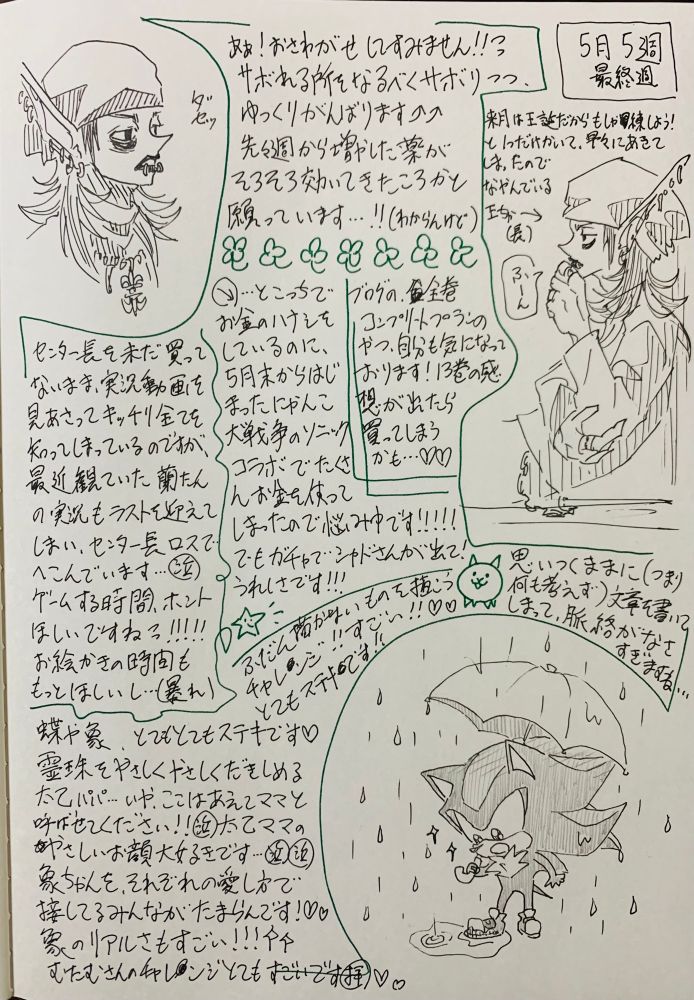 5月5週
最終週
あぁ!おさわがせしてすみません!!
サボれる所をなるべくサボりつつ、
ゆっくりがんばります
先々週から増やした薬が
そろそろ効いてきたころかと
願っています…!!(わからんけど)
ダセッ
来月は王誕だからもしゃ習練しよう!
と1つだけかいて、早々にあきて
しまったので
なやんでいる
(長)
ふーん
…とこっちで
お金のハナシを
しているのに、
5月末からはじ
まったにゃんこ
大戦争のソニック
コラボでたくさ
んお金を使って
しまったので悩み中です!!!!!
でもガチャでシャドさんが出て
うれしさです!!!
ブログの、全巻
コンプリートプランの
やつ、自分も気になって
おります!13巻の感
想が出たら
買ってしまう
かも…♡♡
センター長を未だ買って
ないまま、実況動画を
見あさってキッチリ全てを
知ってしまっているのですが、
最近観ていた蘭たん
の実況もラストを迎えて
しまい、センター長ロスで
へこんでいます…(泣)
ゲームする時間、ホント
ほしいですねっ!!!!!
お絵かきの時間も
もっとほしいし…(暴れ)
思いつくままに(つまり
何も考えず)文章を書いて
しまって、脈絡がなさ
すぎますね…
ふだん描かないものを描こう
チャレンジ!!すごい!!♡♡
とてもステキです!!
蝶や象、とてもとてもステキです♡
霊珠をやさしくやさしくだきしめる
太乙パパ…いや、ここはあえてママと
呼ばせてください!!(泣)太乙ママの
やさしいお顔大好きです…(泣)(泣)
象ちゃんを、それぞれの愛し方で
接してるみんながたまらんです!♡♡
象のリアルさもすごい!!!
むたむさんのチャレンジとてもすごいです(拝)♡♡